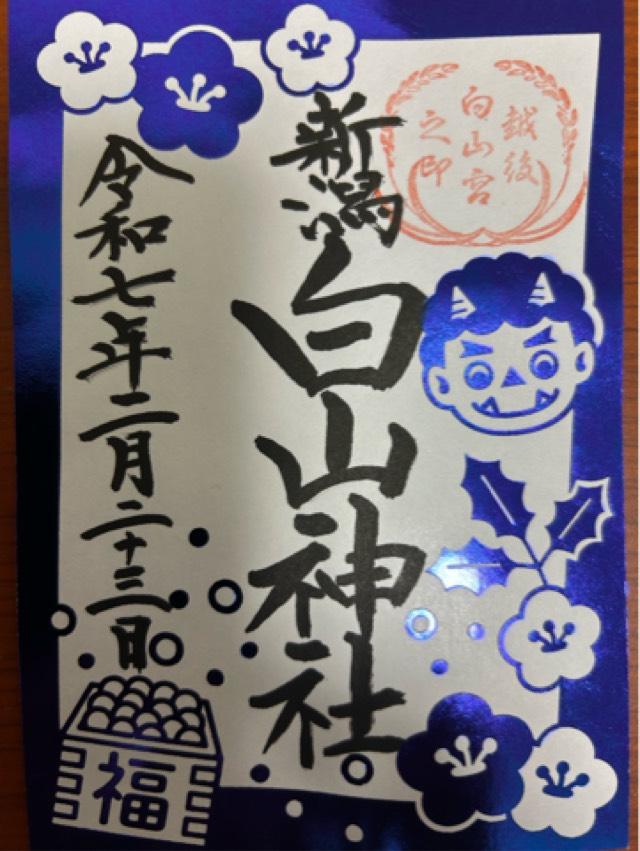 越後
白山宮
之印
新潟
白山神社
令和七年二月二十三日
福